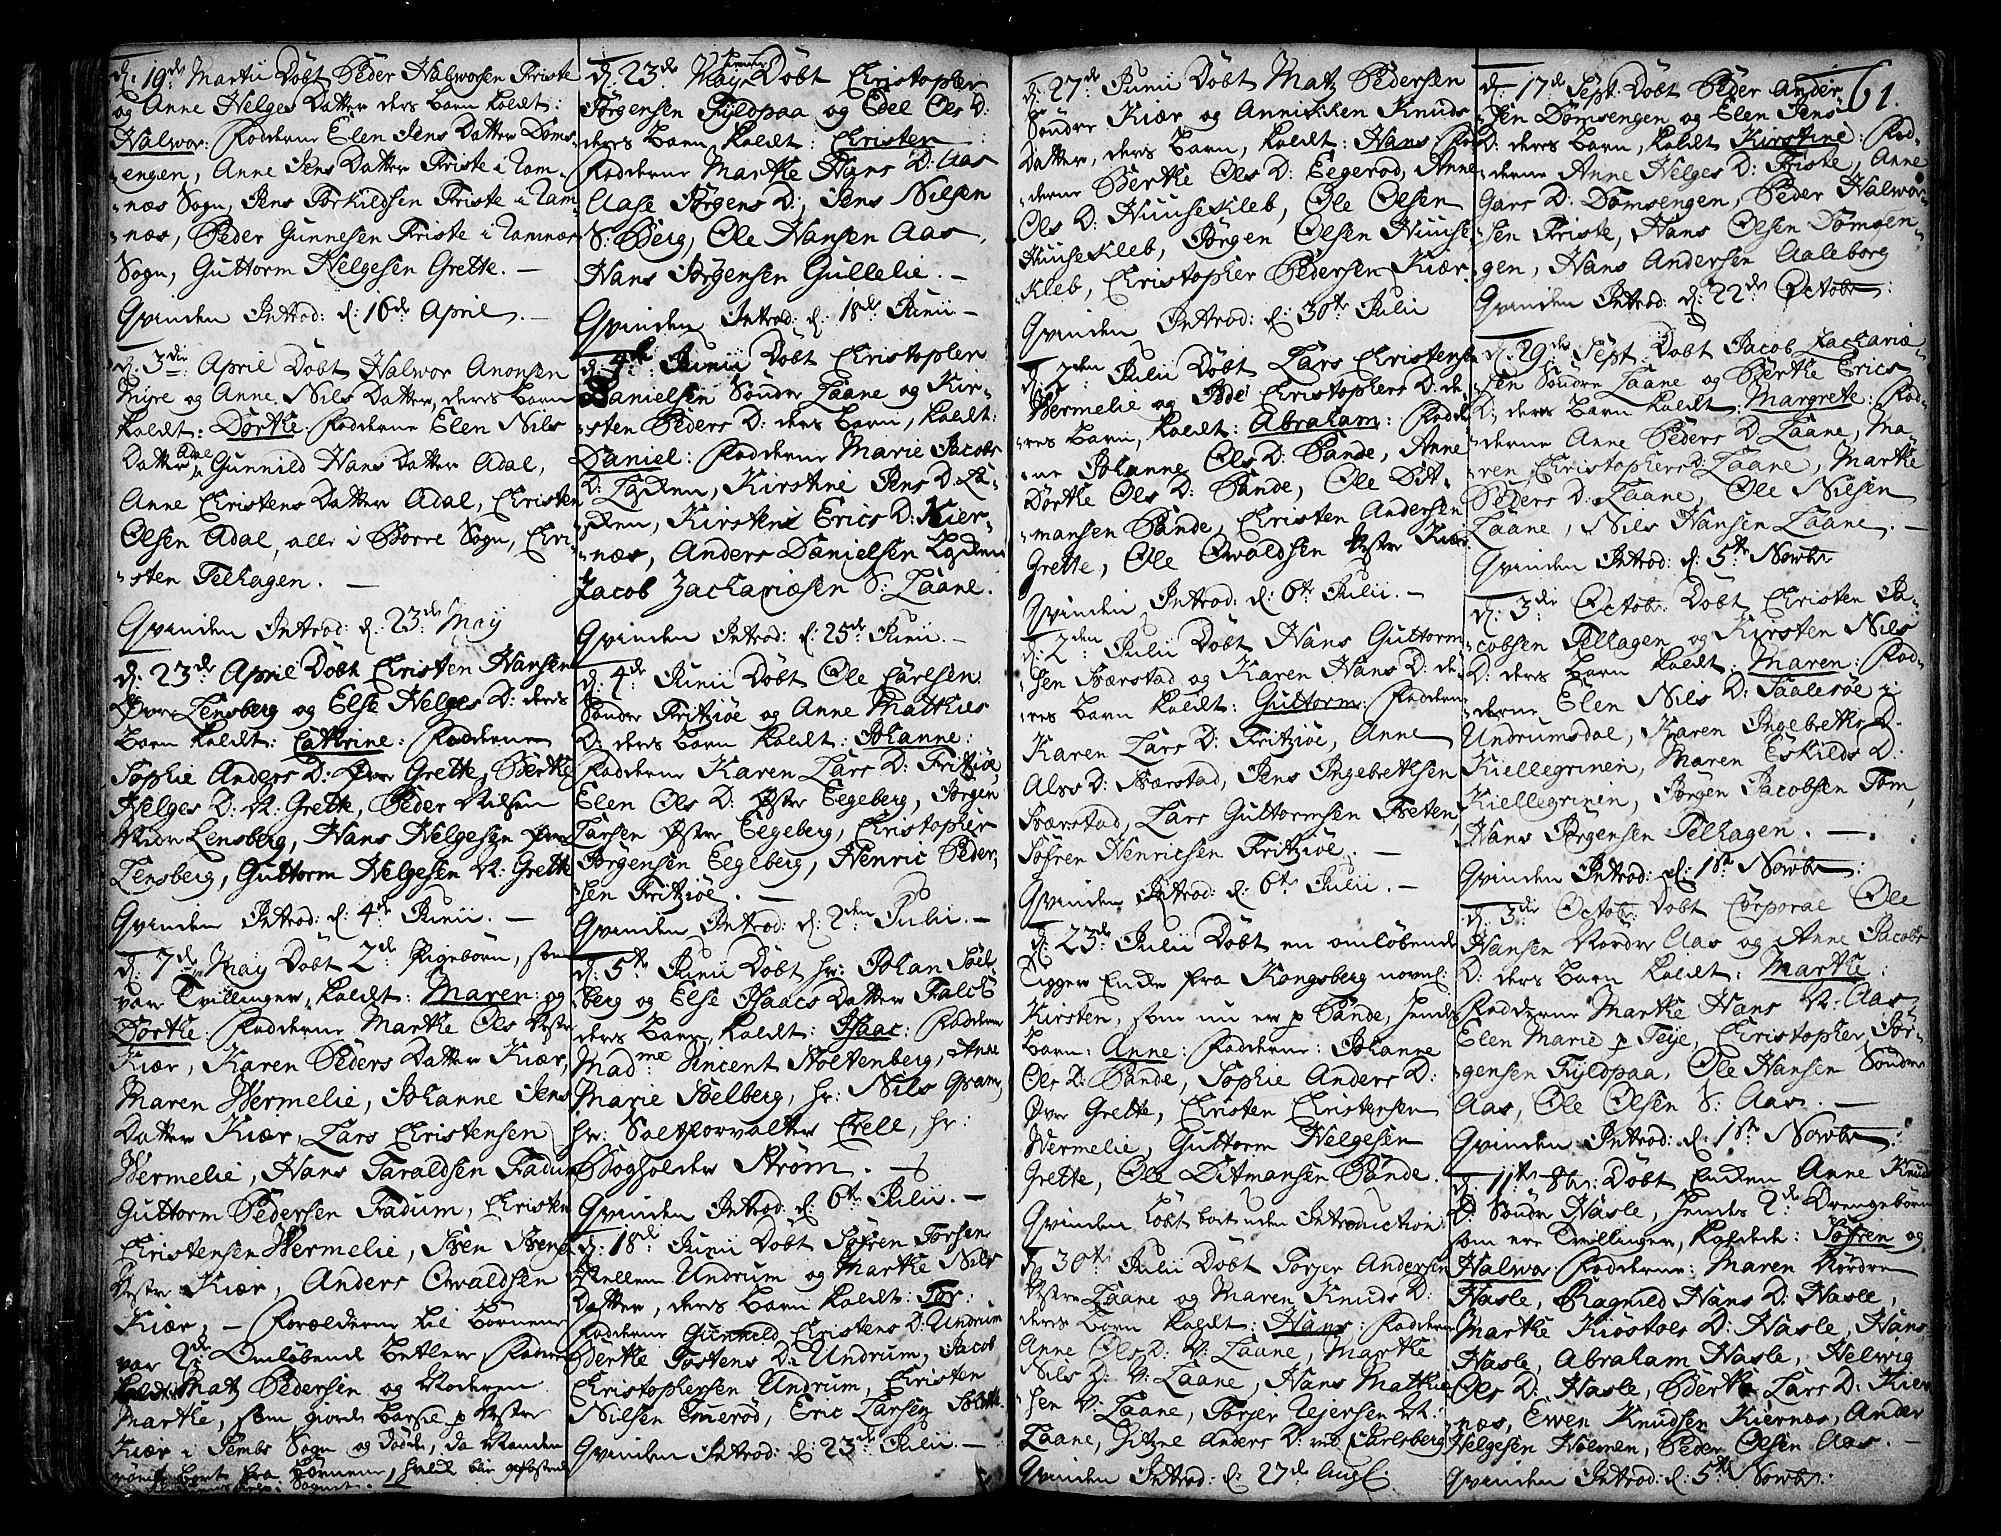 d: 19de Martii Döbt Peder Halworsen Friste
og Anne Helges Datter ders Barn kaldt:
Halwor: Fadderne Elen Jens Datter Döms-
-engen, Anne Jens Datter Friste i Ram-
-næs Sogn, Jens Torkildsen Friste i Ram-
-næs, Peder Gunnesen Friste i Ramnæs
Sogn, Guttorm Helgesen Grette. —
Qvinden Introd: d: 16de April. —
d: 3die April Döbt Halwor Anonsen
Myre og Anne Nils Datter, deres Barn
kaldt: Dorthe: Fadderne Elen Nils
Datter Adal, Gunnild Hans Datter Adal,
Anne Christens Datter Adal, Christen
Olsen Adal, alle i Borre Sogn, Chri-
-sten Telhagen. —
Qvinden Introd: d: 23de May
d: 23de April Döbt Christen Hansen
Över Lensberg og Else Helges D: ders
Barn kaldt: Cathrine: Fadderne
Sophie Anders D: Över Grette, Berthe
Helges D: N: Grette, Peder Nilsen
Nedre Lensberg, Hans Helgesen Över
Lensberg, Guttorm Helgesen N: Grette
Qvinden Introd: d: 4de Junii. —
d: 7de May Döbt 2de Pigebörn, som
var Tvillinger, kaldt: Maren og
Dorthe: Fadderne Marthe Ols Vestre
Kiær, Karen Peders Datter Kiær,
Maren Wermelie, Johanne Jens
Datter Kiær, Lars Christensen
Wermelie, Hans Taraldsen Fadum
Guttorm Pedersen Fadum, Christen
Christensen Wermelie, Iven Ivens
Vestre Kiær, Anders Owaldsen
Kiær, — Forældrene til Börnene
var 2de Omløbende Betlere, Faderen
kaldt Matz Pedersen og Moderen
Marthe, som giorde Barsel p Vestre
Kiær i Sembs Sogn og döde, da Manden
römte bort fra Börnene, hvilke blev opfostrede

d: 23de May Döbt Christopher
Jörgensen Fyldpaa og Edel Ols D:
deres Barn kaldt: Christen:
Fadderne Marthe Hans D: Aas
Aase Jörgens D:, Jens Nilsen
S: Berg, Ole Hansen Aas,
Hans Jörgensen Gullelie. —
Qvinden Introd: d: 18de Junii —
d: 4de Junii Döbt Christopher
Danielsen Söndre Laane og Kir-
-sten Peders D: ders Barn, kaldt:
Daniel: Fadderne Marie Jacobs
D: Loften, Kirstine Jens D: Lö-
-ften, Kirsten Erics D: Kier-
-næs, Anders Danielsen
Jacob Zachariæsen S: Laane.
Qvinden Introd: d: 25de Junii. —
d: 4de Junii Döbt Ole Carlsen
Söndre Fritzöe og Anne Mathies
D: ders Barn kaldt: Johanne:
Fadderne Karen Lars D: Fritzöe
Elen Ols D: Östre Eegeberg, Jörgen
Larsen Östre Eegeberg, Christopher
Jörgensen Eegeberg, Henric Peder-
sen Fritzöe. —
Qvinden Introd: d: 2den Julii. —
d: 5te Junii Döbt hr: Johan Soel-
berg og Else Isaacs Datter Falck
ders Barn, kaldt: Isaac: Fadderne
Madme Vincent Stoltenberg, Anne
Marie Soelberg, hr: Nils Gram,
hr: Saltforvalter Crell, hr:
Bogholder Ström. —
Qvinden Introd: d: 6te Julii. —
d: 18de Junii Döbt Söfren Torsen
Mellem Undrum og Marthe Nils
Datter, deres Barn kaldt: Tor:
Fadderne Gunnild Christens D: Undrum
Berthe Tostens D: Undrum, Jacob
Christophersen Undrum, Christen
Nilsen Smerød, Eric Larsen
Qvinden Introd: d: 23de Julii. —

d: 27de Junii Döbt Matz Pedersen
Söndre Kiær og Anniken Knuds
Datter, ders Barn, kaldt: Hans: Fad-
derne Berthe Ols D: Eegerod, Anne
Ols D: Huusekleb, Ole Olsen
Huusekleb, Jörgen Olsen Huuse-
kleb, Christopher Pedersen Kiær
Qvinden Introd: d: 30te Julii
d: 2den Julii Döbt Lars Christensen
Wermelie og Ide Christophers D: de-
-res Barn, kaldt: Abraham: Fadder-
-ne Johanne Ols D: Sande, Anne
Dorthe Ols D: Sande, Ole Dit-
-mansen Sande, Christen Andersen
Grette, Ole Owaldsen Vestre Kiær
Qvinden Introd: d: 6te Julii. —
d: 2den Julii Döbt Hans Guttorm-
-sen Sværstad og Karen Hans D: de-
-res Barn kaldt: Guttorm: Fadderne
Karen Lars D: Fritzöe, Anne
Als D: Sværstad, Jens Ingebretsen
Sværstad, Lars Guttormsen Freten,
Söfren Henricsen Fritzöe. —
Qvinden Introd: d: 6te Julii. —
d: 23de Julii Döbt en omlöbende
Tigger Enke fra Kongsberg navnl:
Kirsten, som nu er p Sande, hendes
Barn: Anne: Fadderne: Johanne
Ols D: Sande, Sophie Anders D:
Över Grette, Christen Christensen
Wermelie, Guttorm Helgesen
Grette, Ole Ditmansen Sande.
Qvinden Löbt bort uden Introduction
d: 30te Julii Döbt Torjer Andersen
Vestre Laane og Maren Knuds D:
ders Barn kaldt: Hans: Fadderne
Anne Ols D: V: Laane, Marthe
Nils D: V: Laane, Hans Mathie-
sen V: Laane, Torjer Vejersen N:
Laane, Zitzel Anders D: ved Carlsberg
Qvinden Introd: d: 27de Aug:

61.
d: 17de Sept: Döbt Peder Ander-
-sen Dömsengen og Elen Jens
D: ders Barn, kaldt Kirstine: Fad-
derne Anne Helges D: Friste, Anne
Gars D: Dömsengen, Peder Halwor-
-sen Friste, Hans Olsen Dömsen-
-gen, Hans Andersen Aaleborg
Qvinden Introd: d: 22de Octobr:
d: 29de Sept: Döbt Jacob Zachariæ-
-sen Söndre Laane og Berthe Erics
D: ders Barn kaldt: Margrete: Fad-
-derne Anne Peders D: Laane, Ma-
-ren Christophers D: Laane, Marthe
Peders D: Laane, Ole Nilsen
Laane, Nils Hansen Laane. —
Qvinden Introd: d: 5te Novbr
d: 3die Octob: Döbt Christen Ja-
-cobsen Telhagen og Kirsten Nils
D: ders Barn kaldt: Maren: Fad-
derne Elen Nils D: Saaleröe i
Undrumsdal, Karen Ingebreths D:
Kiellegrinen, Maren Eskilds D:
Kiellegrinen, Jörgen Jacobsen Tom,
Hans Jörgensen Telhagen. —
Qvinden Introd: d: 1ste Novbr:
d: 3die Octob: Döbt Corporal Ole
Hansen Nordre Aas og Anne Jacobs
D: ders Barn kaldt: Marthe:
Fadderne Marthe Hans N: Aas
Elen Marie p Teÿe, Christopher Jör-
-gensen Fyldpaa, Ole Hansen Söndre
Aas, Ole Olsen S: Aas. —
Qvinden Introd: d: 1ste Novbr:
d: 11te 8br: Döbt Enken Anne Knuds
D: Söndre Hasle, hendes 2de Drengebörn
som ere Tvillinger, kaldede: Söfren og
Halwor: Fadderne: Maren Nordre
Hasle, Ragnild Hans D: Hasle,
Marthe Kiöstols D: Hasle, Hans
Hasle, Abraham Hasle, Helwig
Ols D: Hasle, Berthe Lars D: Kier-
næs, Ewen Knudsen Kiernæs, Ander
Helgesen Holmen, Peder Olsen Aas.
Qvinden Introd: d: 5te Novbr: